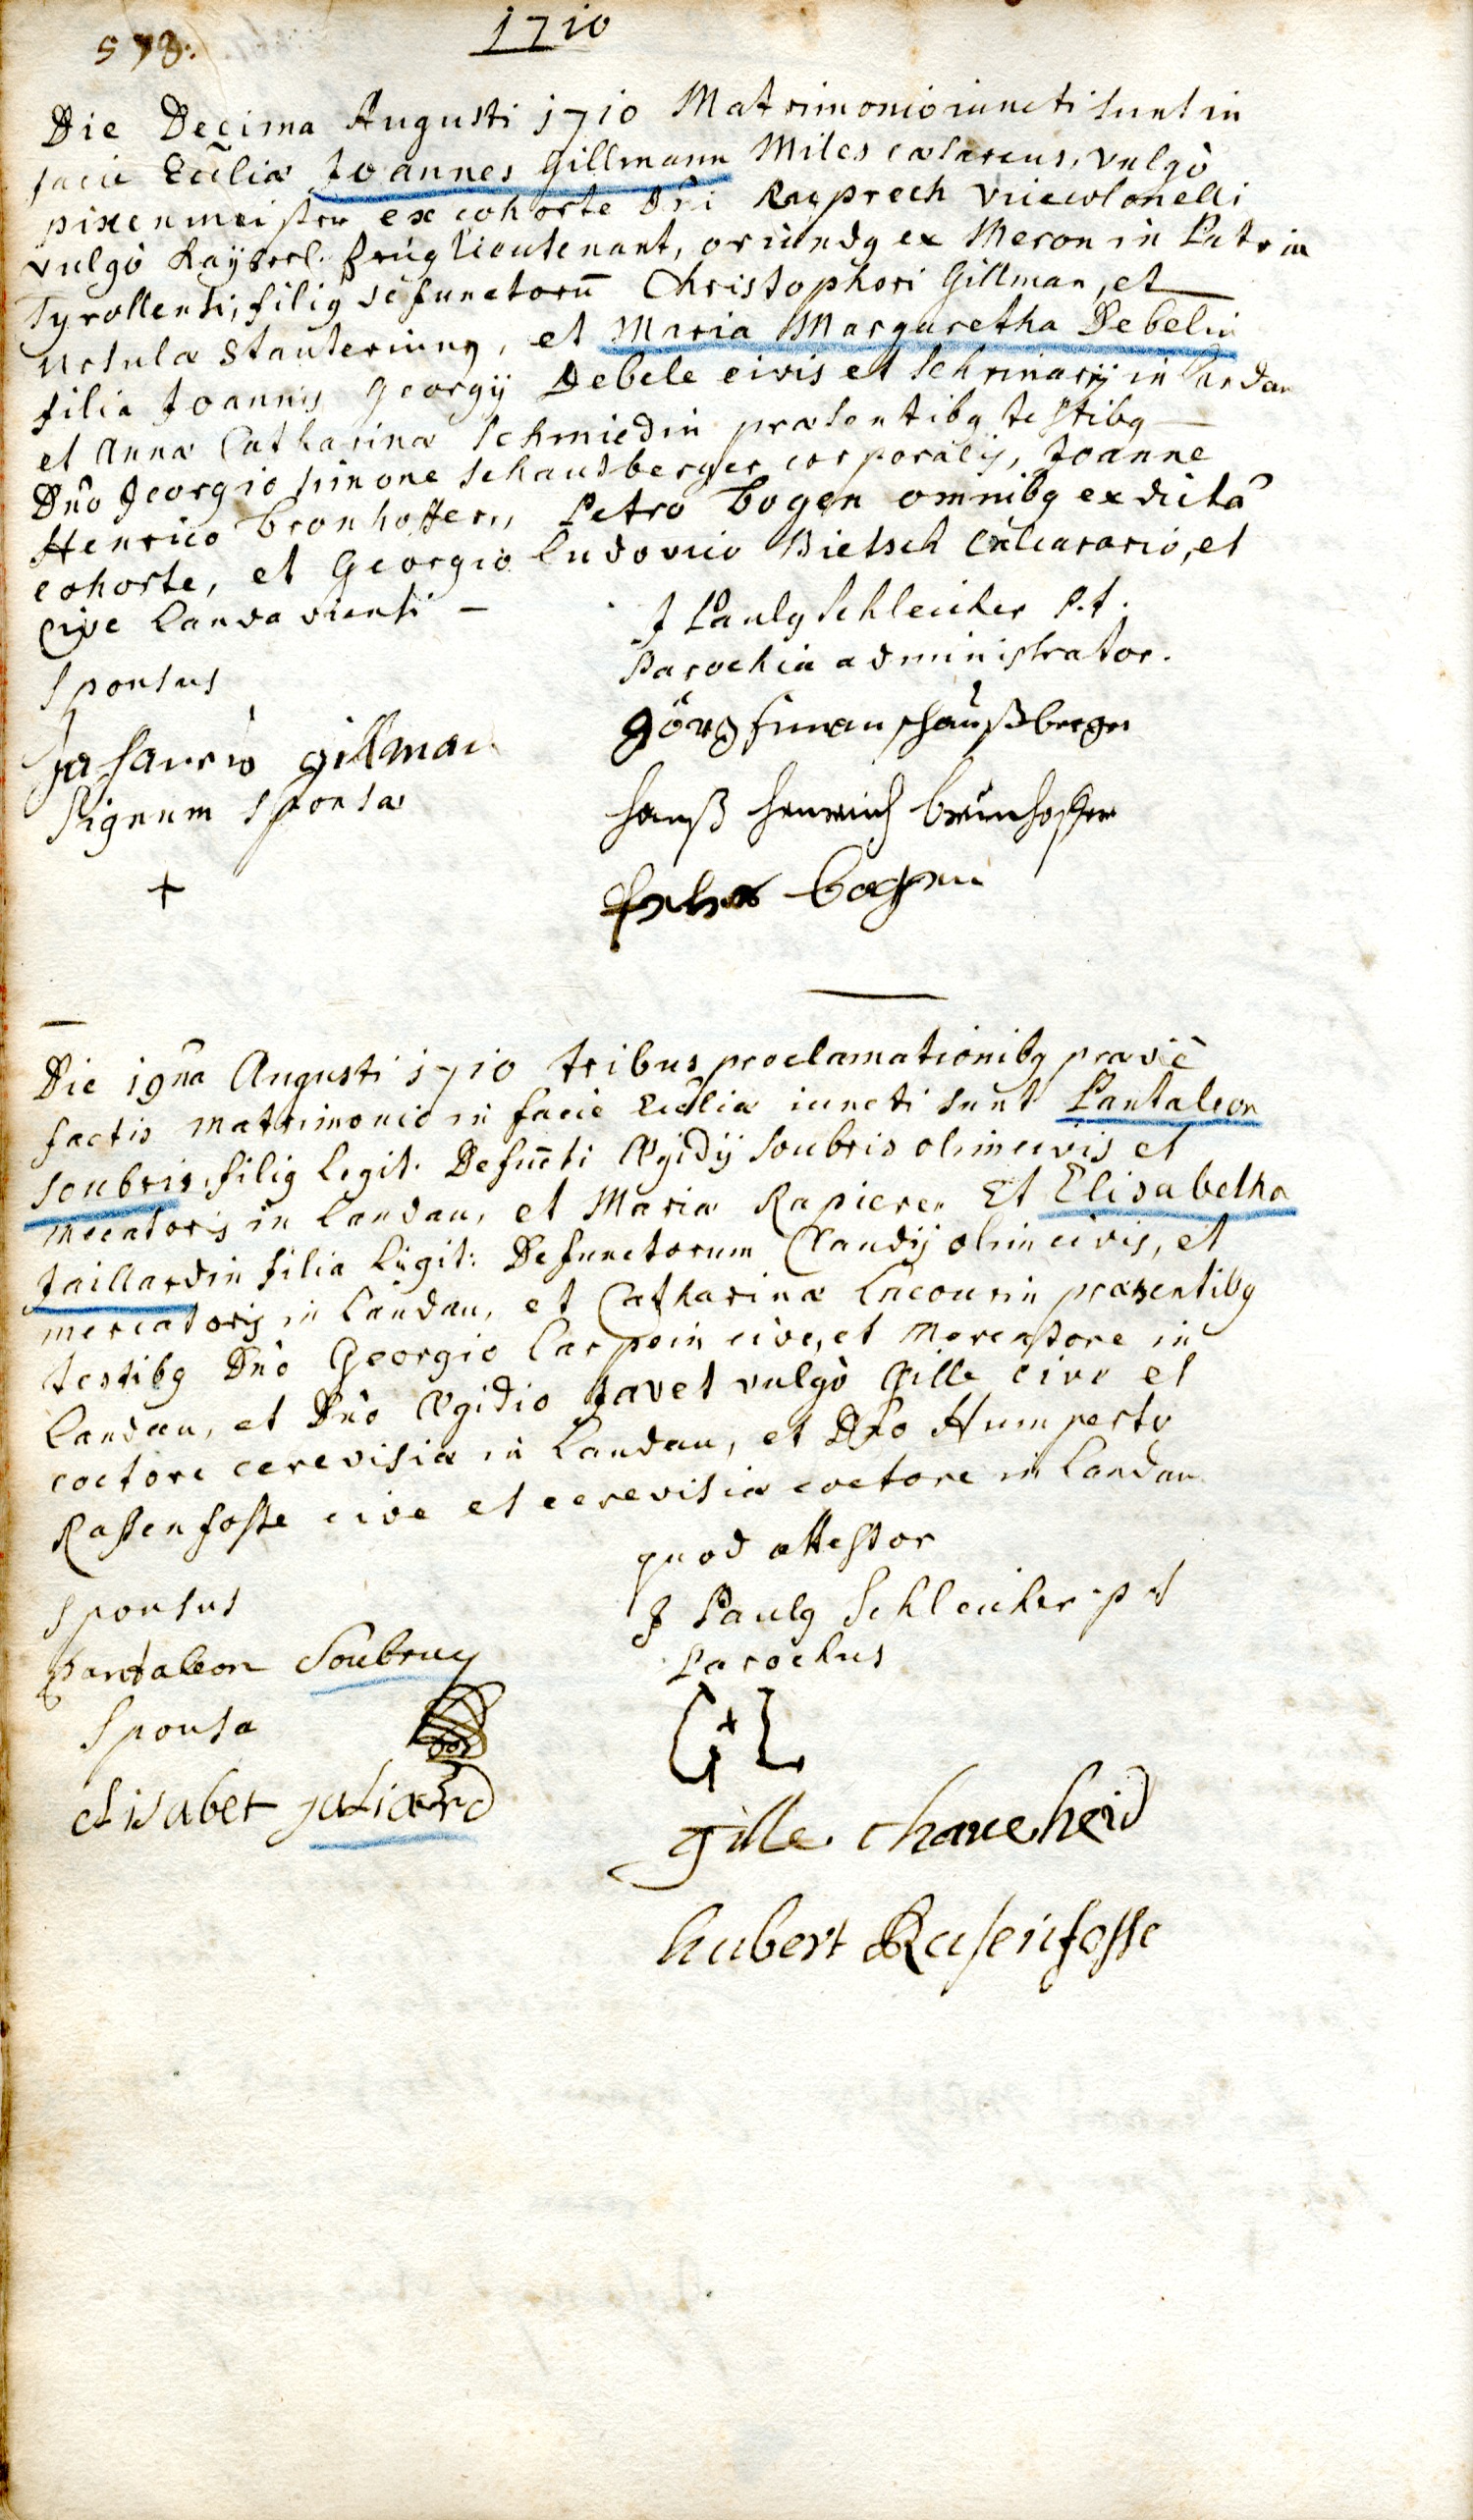 578.
1710
Die Decima Augusti 1710 Matrimonio iuncti sunt in
facie Eccliæ Joannes Gillmann Miles cæsareus, vulgò
pixenmeister ex cohorte Dñi Rupprech vicecolonelli
vulgò Kayserl. Lieutenant, oriundq ex Meron in Patria
Tyrollensi, filiq defunctorū Christophori Gillman, et
Ursulæ, et Maria Margaretha Debelin
filia Joannis Georgij Debele civis et Schrinarij in Landau
et Annæ Catharinæ Schmiedin præsentibq testibq
Dño Georgio Simone Schausberger corporalis, Joanne
Henrico bronhoffer, Petro bogen omnibq ex dictâ
cohorte, et Georgio Ludovico Bietsch et
cive Landaviensi –
J Paulq Schleicher p.t.
Parochiæ administrator.
Sponsus
görg siman schaußberger
gillman
hanß henrich
Signum sponsæ
bogen
+
Die 19na Augusti 1710 tribus proclamationibq præviè
factis matrimonio in facie Eccliæ iuncti sunt Pantaleon
Soubris, filiq legit. Defuncti Ægidij Soubris olim civis et
mercatoris in Landau, et Mariæ Rapieren Et Elisabetha
Jaillardin filia Legit: Defunctorum Claudij olim civis, et
mercatoris in Landau, et Catharinæ Lacourin præsentibq
testibq Dño Georgio Carpein cive, et Mercatore in
Landau, et Dño Ægidio Javet vulgò Gille cive et
coctore cerevisiæ in Landau, et Dño Humperto
Rassenfosse cive et cerevisiæ coctore in Landau
quod attestor
Sponsus
J Paulq Schleicher p t
Pantaleon Soubruy
Parochus
Sponsa
G + L
Elisabet jaliard
Gille chaveheid
hubert Rasenfosse